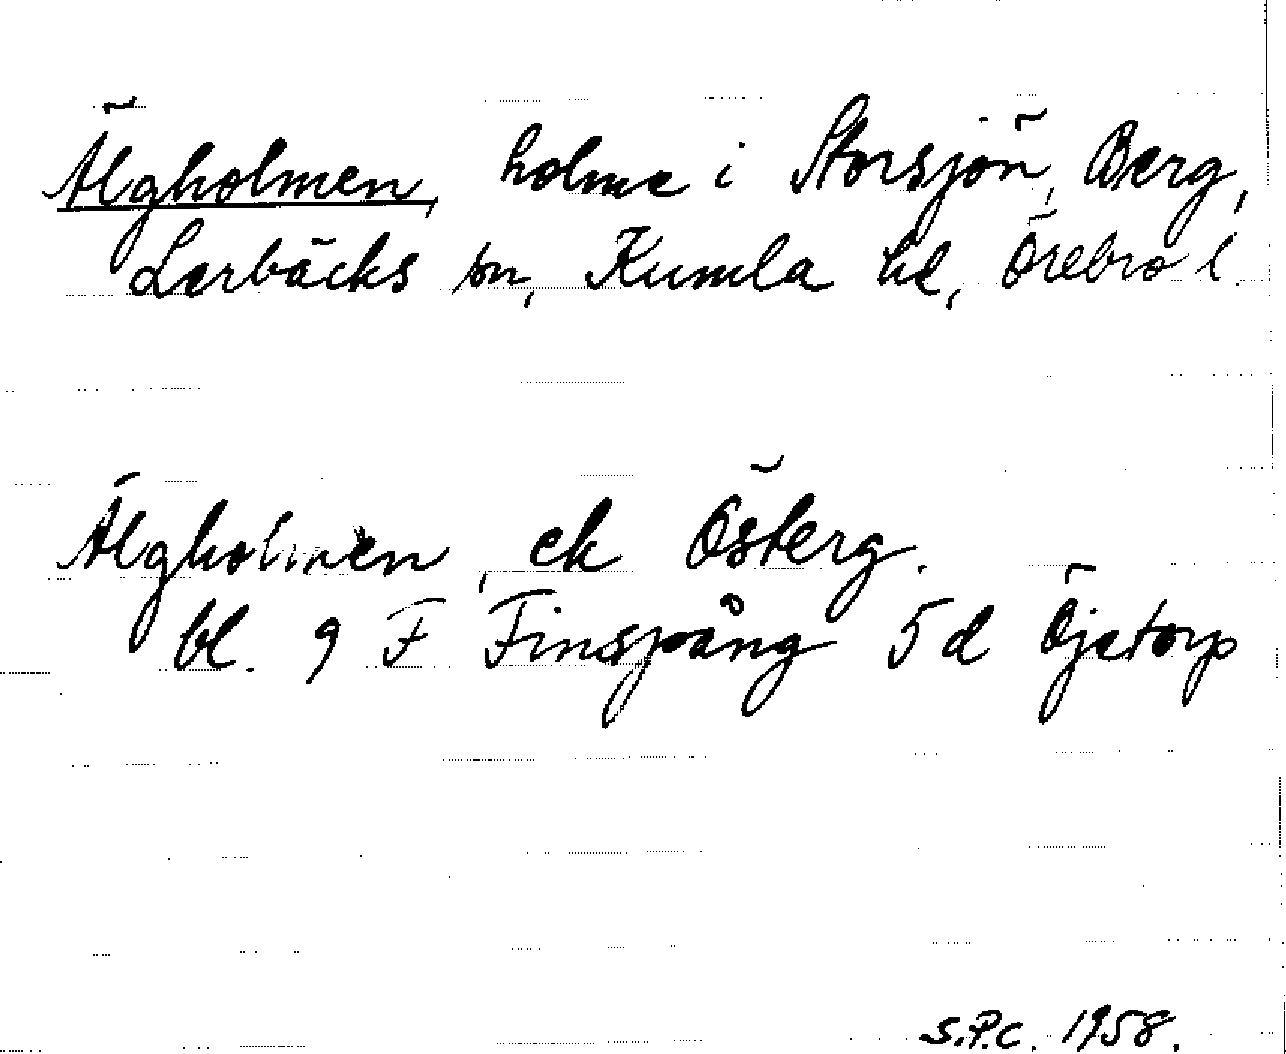 Älgholmen, holme i Storsjön, Berg,
Lerbäcks sn, Kumla hd, Örebro l.
Älgholmen, ek Österg.
bl. 9 F Finspång 5 d Öjetorp
S.P.C. 1958.